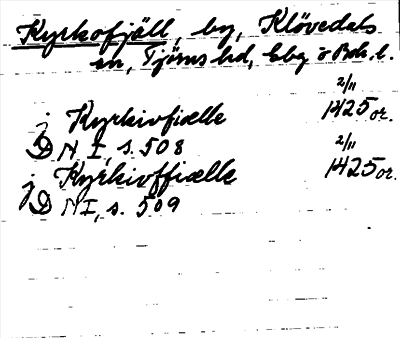 Kyrkofjäll, by, Klövedals
sn, Tjörns hd, Gbg o Boh. l.
j Kyrkiofiælle 2/11 1425 or.
D N I, s. 508
j Kyrkioffiælle 2/11 1425 or.
D N I, s. 509